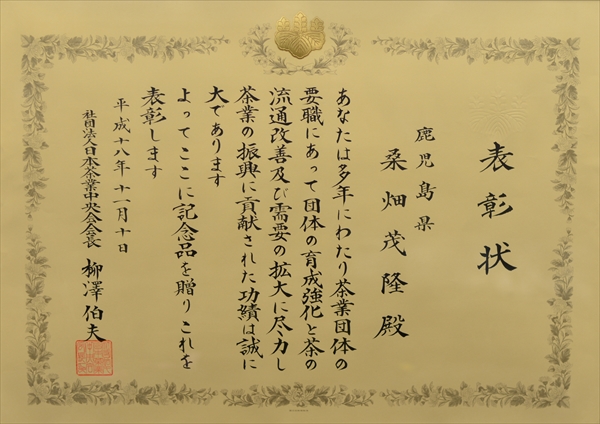 表彰状
鹿児島県
桑畑茂隆殿
あなたは多年にわたり茶業団体の
要職にあって団体の育成強化と茶の
流通改善及び需要の拡大に尽力し
茶業の振興に貢献された功績は誠に
大であります
よってここに記念品を贈りこれを
表彰します
平成十八年十一月十日
社団法人日本茶業中央会会長 柳澤伯夫